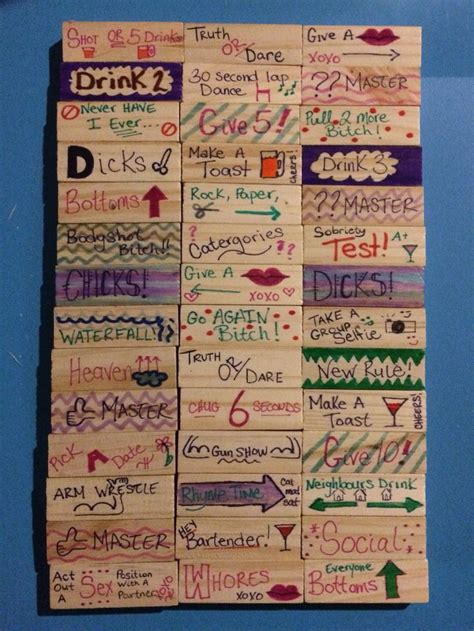 SHOT OR 5 Drinks
Truth
OR
Dare
Give A
XOXO
Drink 2
30 second lap
Dance
?? MASTER
Never HAVE
I Ever...
Give 5!
Pull 2 more
Bitch!
Dicks
Make A
TOAST
cheers!
Drink 3
Bottoms
Rock, Paper,
?? MASTER
Bodyshot
Bitch!!
Catergories
??
Sobriety
Test!
A+
CHICKS!
Give A
XOXO
DICKS!
WATERFALL!
Go AGAIN
Bitch!
TAKE A
Group
Selfie
Heaven
TRUTH
OR
DARE
New Rule!
MASTER
CHUG 6 SECONDS
Make A
TOAST
CHEERS!
Pick A Date
Gun Show
Give 10!
ARM WRESTLE
Rhyme Time
Cat
mat
sat
Neighbours Drink
MASTER
HEY
Bartender!
Social
Act
Out
A
Sex
Position With A
Partner
XOXO
WHORES
XOXO
Everyone
Bottoms